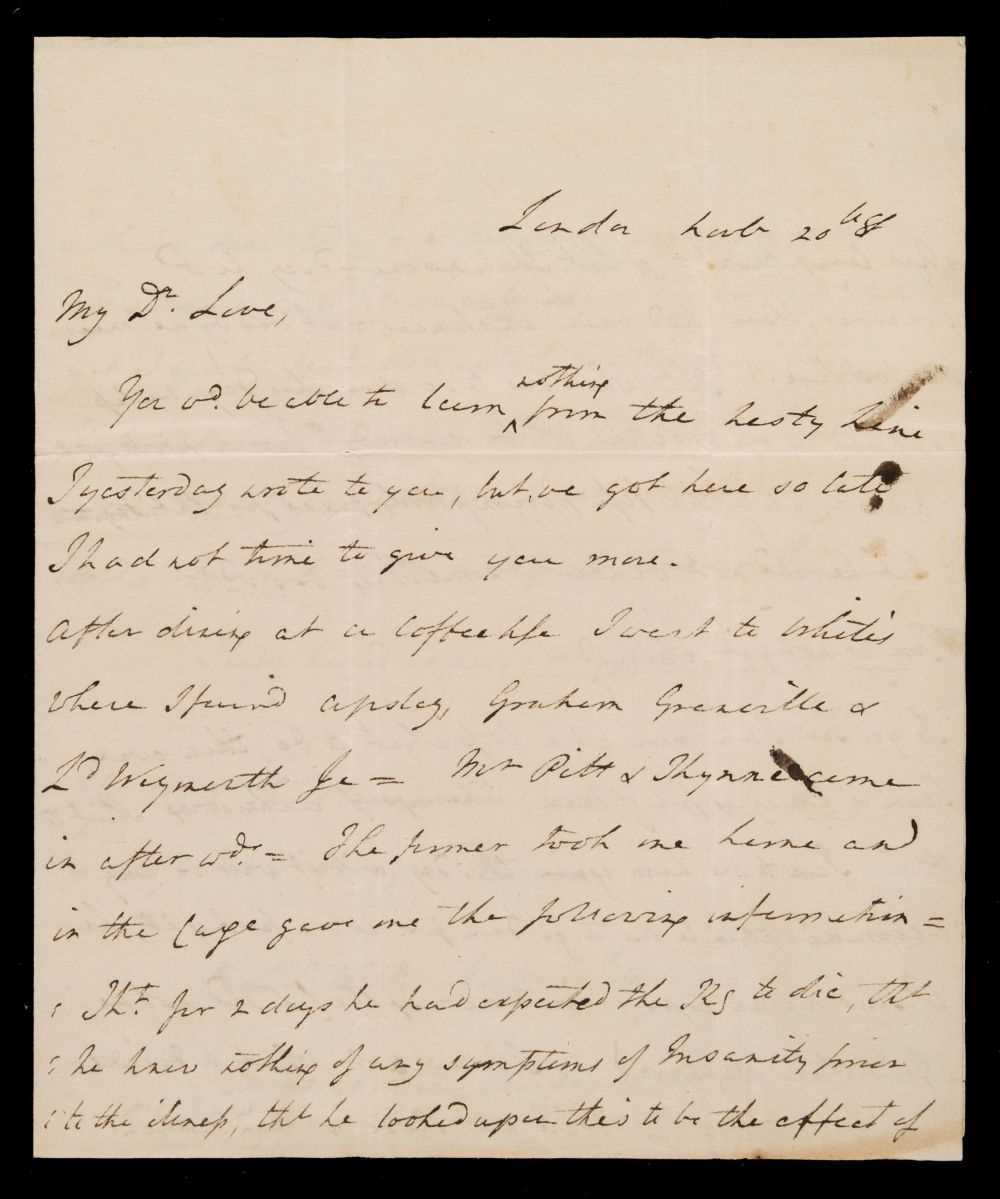 London Novbr 20th 88
My Dr. Love,
You wd. be able to learn nothing from the hasty Line
I yesterday wrote to you, but, we got here so late
I had not time to give you more.
After dining at a Coffee hse I went to White's
where I found Apsley, Graham Grenville &
Ld Weymouth Je = Mr Pitt & Thynne came
in after wds. = The former took me home and
in the Cage gave me the following information =
: Tht. for 2 days he had expected the Kg to die, tht
: he knew nothing of any symptoms of Insanity prior
: to the illness, tht he looked upon this to be the effect of